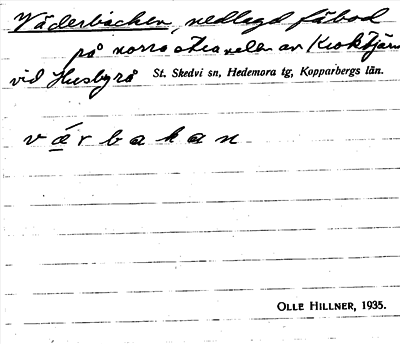 Väderbacken, nedlagd fäbod
på norra stranden av Kroktjärn
vid Husbyrå St. Skedvi sn, Hedemora tg, Kopparbergs län.
vǽrbakan
OLLE HILLNER, 1935.